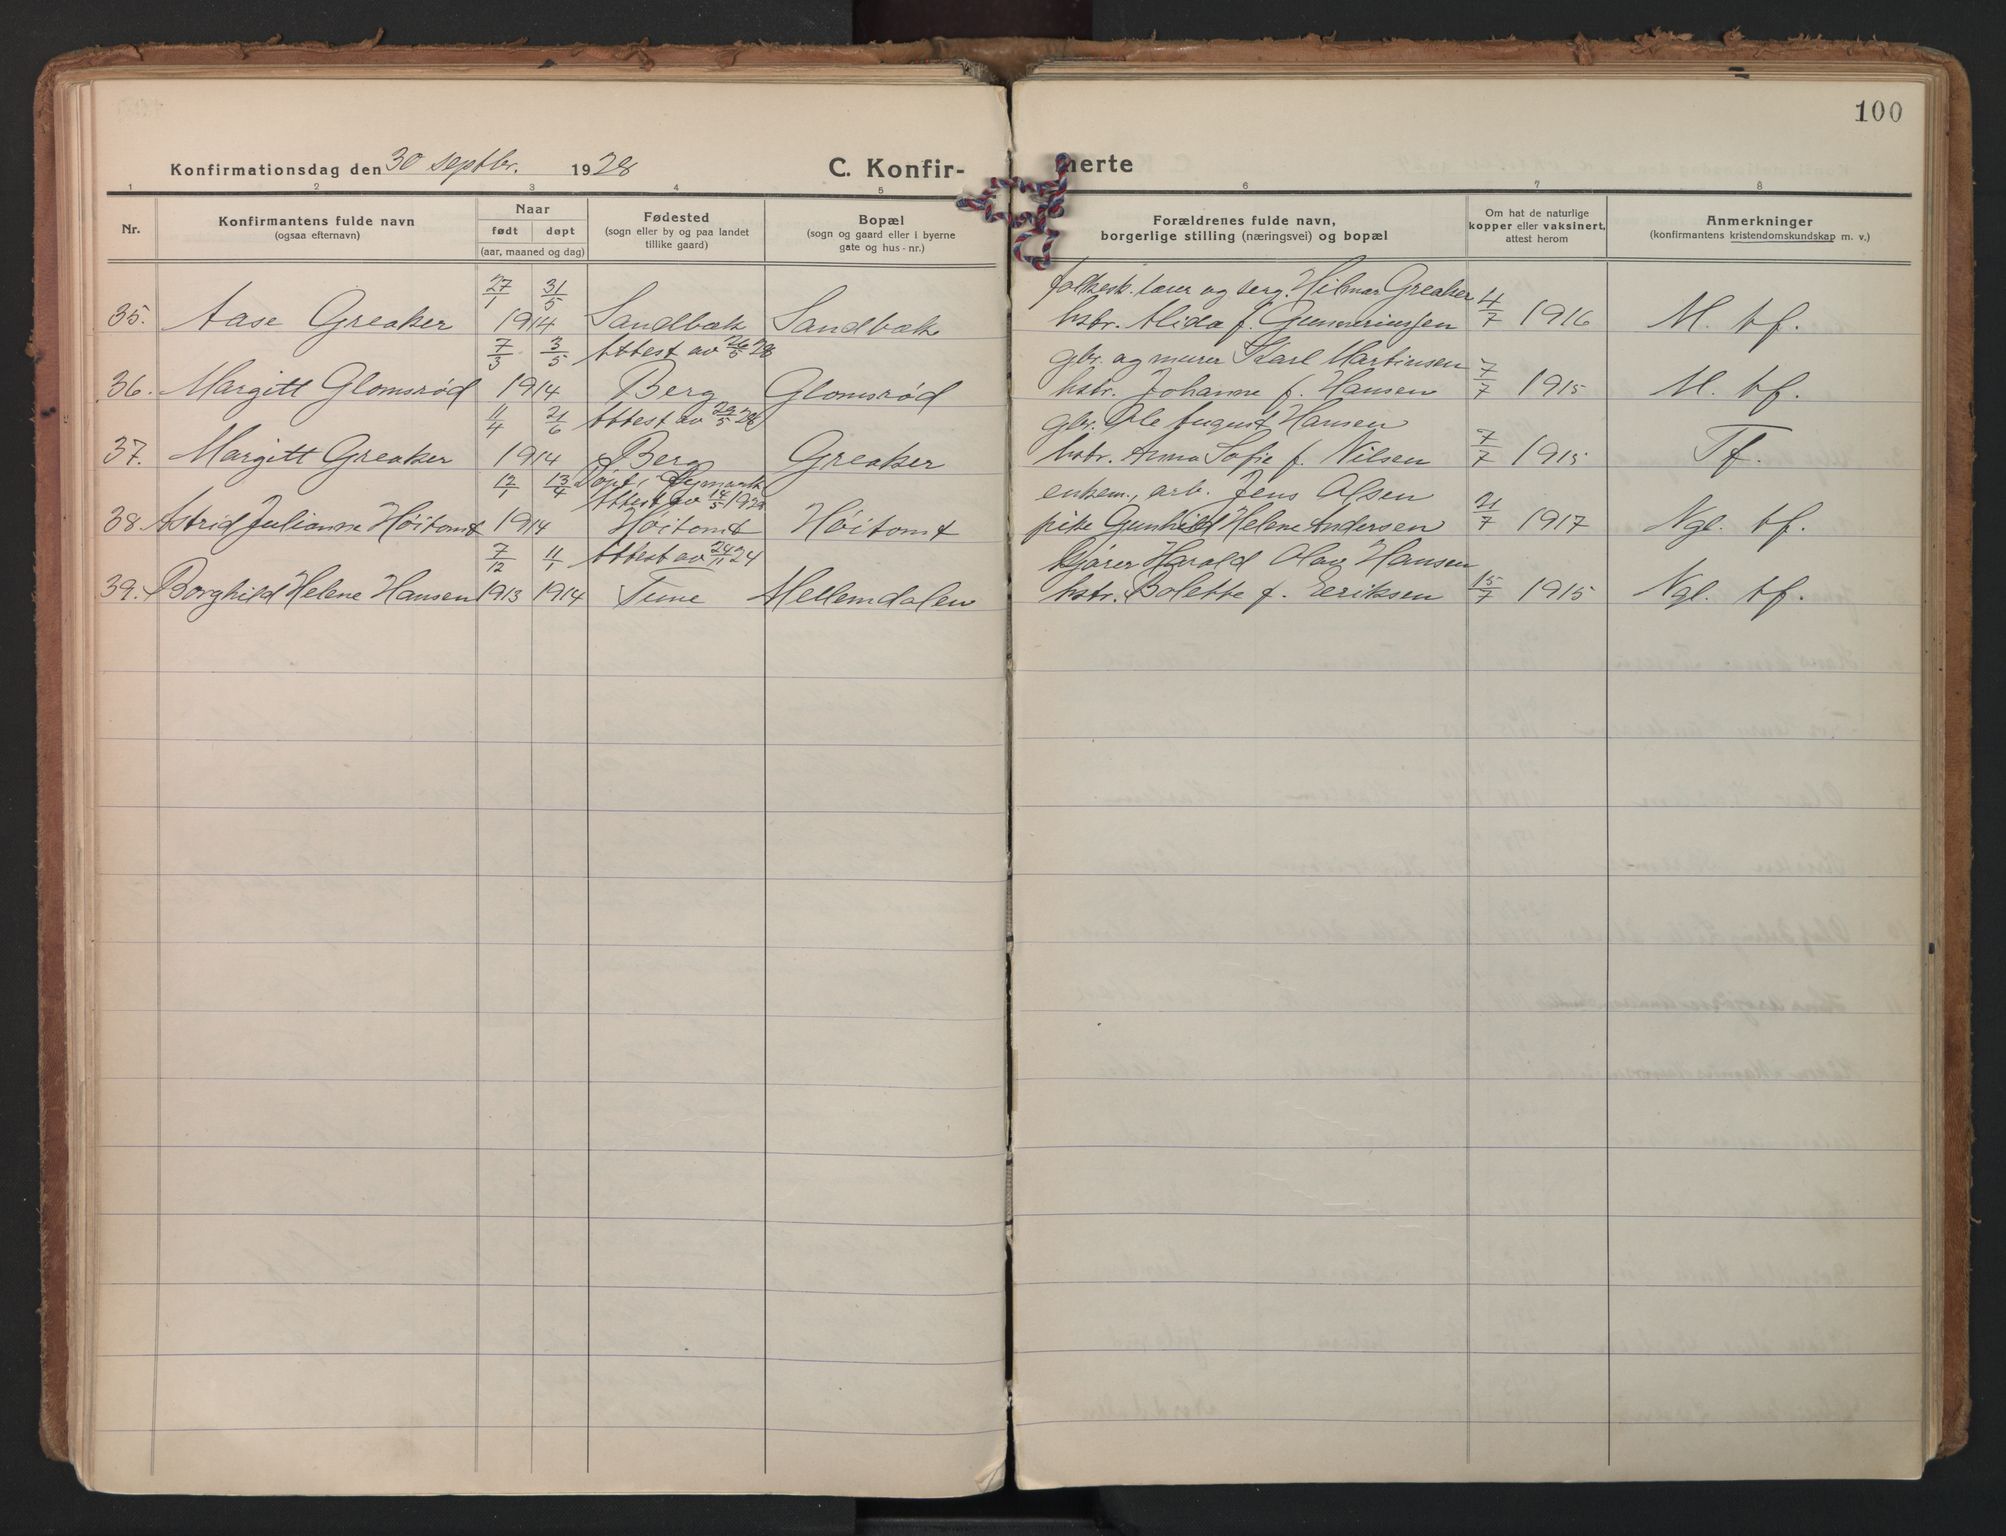 100
Konfirmationsdag den 30 septbr. 1928
C. Konfir-
merte
1 2 3 4 5 6 7 8
Nr.
Konfirmantens fulde navn
(ogsaa efternavn)
Naar
født døpt
(aar, maaned og dag)
Fødested
(sogn eller by og paa landet
tillike gaard)
Bopæl
(sogn og gaard eller i byerne
gate og hus-nr.)
Forældrenes fulde navn,
borgerlige stilling (næringsvei) og bopæl
Om hat de naturlige
kopper eller vaksinert,
attest herom
Anmerkninger
(konfirmantens kristendomskundskap m. v.)
27/1 31/5 folkesk. lærer og serg. Hilmar Greaker
35. Aase Greaker 1914 Sandbæk Sandbæk hstr. Alida f. Gunneriussen 4/7 1916 M. tf.
7/3 3/5 Attest av 26/5 28 gbr. og murer Karl Martinsen
36. Margitt Glomsrød 1914 Berg Glomsrød hstr. Johanne f. Hansen 7/7 1915 M. tf.
4/4 21/6 Attest av 29/5 28 gbr. Ole August Hansen
37. Margitt Greaker 1914 Berg Greaker hstr. Anna Sofie f. Nilsen 7/7 1915 Tf.
12/1 13/4 Døpt i
Attest av 14/5 1928 enkem., arb. Jens Olsen
38. Astrid Julianne Høitomt 1914 Høitomt Høitomt pike Gunhild Helene Andersen 21/7 1917 Ngl. tf.
7/12 11/1 Attest av 24/11 24 kjører Harald Olav Hansen
39. Borghild Helene Hansen 1913 1914 Tune Mellemdalen hstr. Bolette f. Eeriksen 15/7 1915 Ngl. tf.